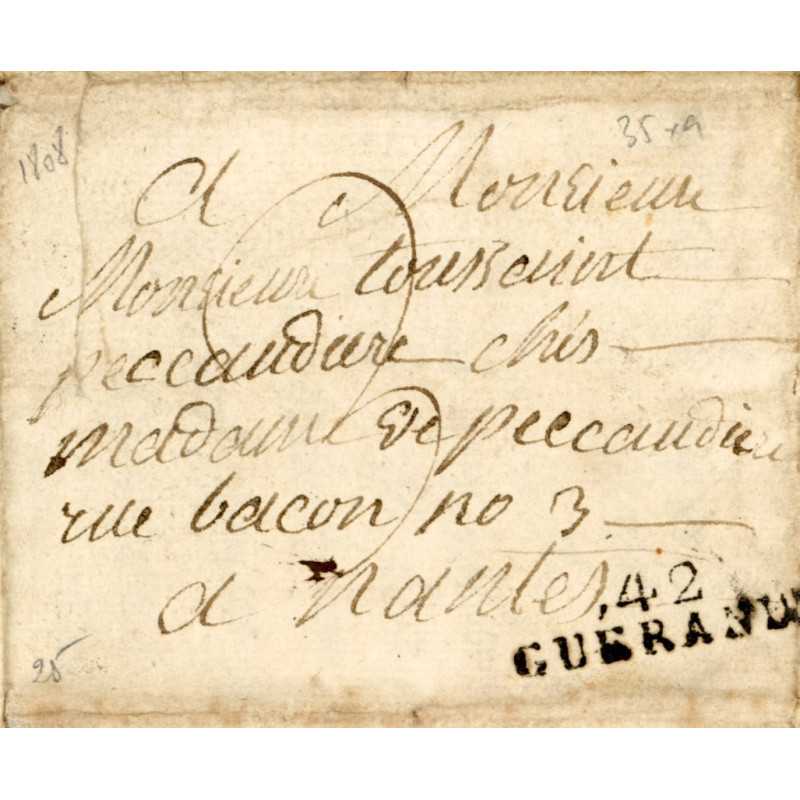 1808
35 +a
A Monsieur
Monsieur toussaint
peccaudiere chés
madame de peccaudiere
rue bacon no 3
a nantes
42
GUERANDE
25